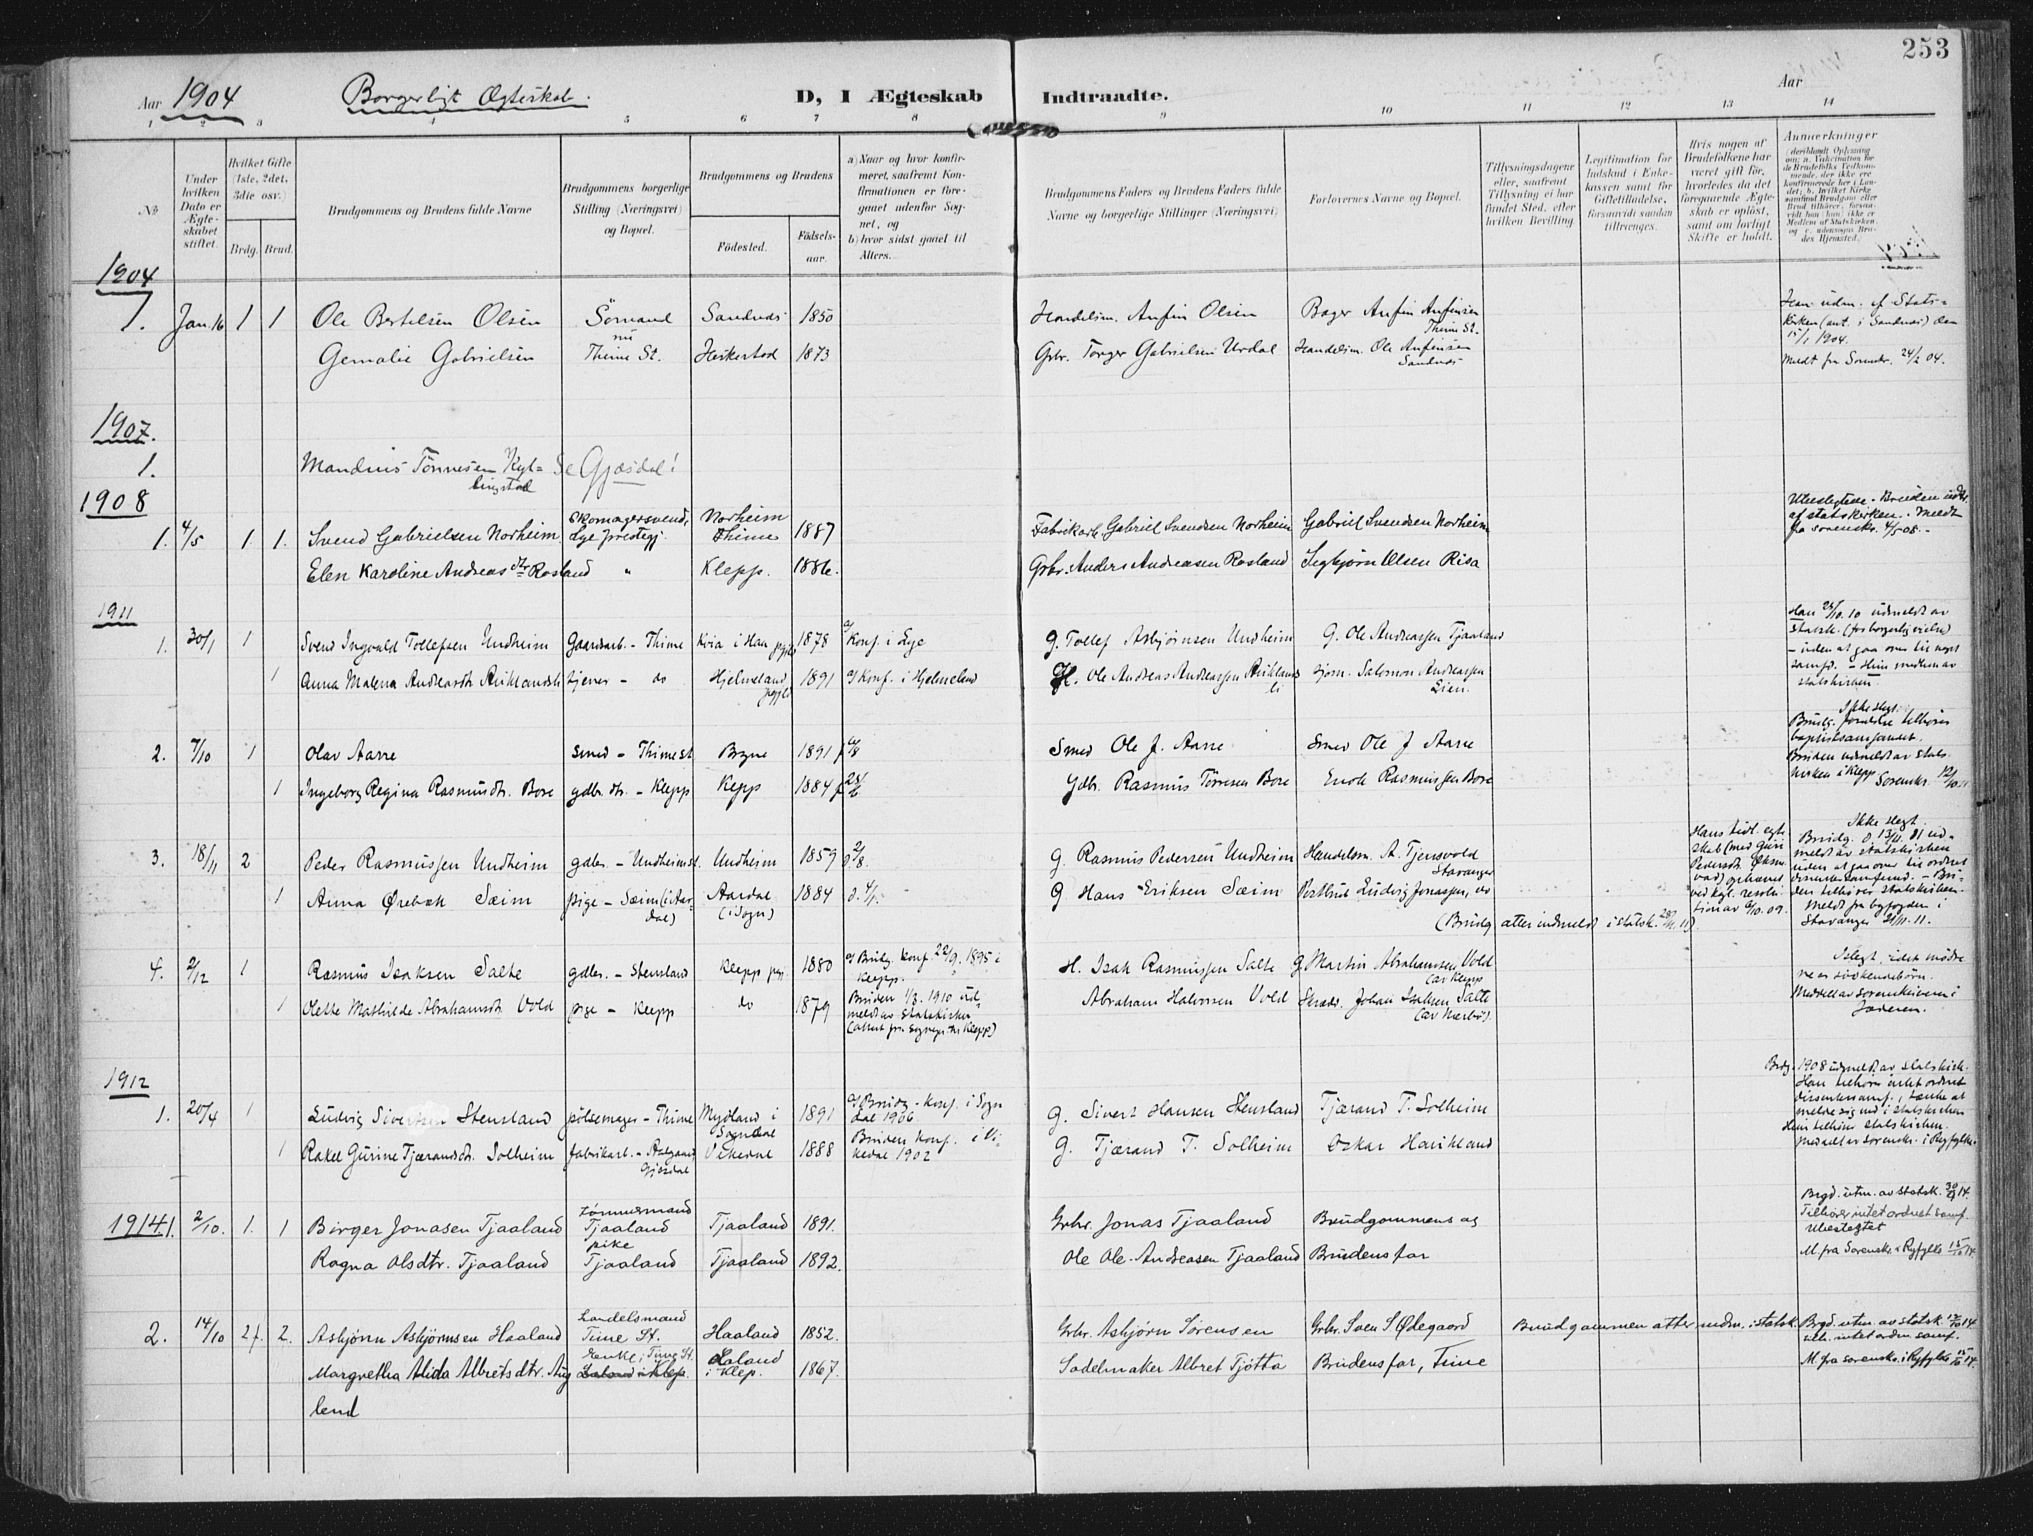 253
Aar 1904 Borgerligt Ægteskab. D, I Ægteskab Indtraadte. Aar
1 2 3 4 5 6 7 8 9 10 11 12 13 14
No
Under hvilken Dato er Ægteskabet stiftet.
Hvilket Gifte (1ste, 2det, 3die osv.)
Brdg. Brud.
Brudgommens og Brudens fulde Navne
Brudgommens borgerlige Stilling (Næringsvei) og Bopæl.
Brudgommens og Brudens
Födested.
Födselsaar.
a) Naar og hvor konfirmeret, saafremt Konfirmationen er foregaaet udenfor Sognet, og
b) hvor sidst gaaet til Alters.
Brudgommens Faders og Brudens Faders fulde Navne og borgerlige Stillinger (Næringsvei)
Forlovernes Navne og Bopæl.
Tillysningsdagene eller, saafremt Tillysning ei har fundet Sted, efter hvilken Bevilling
Legitimation for Indskud i Enkekassen samt for Giftetilladelse, forsaavidt saadan tiltrænges.
Hvis nogen af Brudefolkene har været gift för, hvorledes da det foregaaende Ægteskab er oplöst, samt om lovligt Skifte er holdt.
Anmærkninger
1904
1. Jan. 16 1 1 Ole Bertelsen Olsen Sömand nu Thime St. Sandnes 1850 Handelsm. Anfin Olsen Bager Anfin Anfinsen Thime St. Han udm. af Statskirken (ant. i Sandnes) den 15/1 1904.
Gemalie Gabrielsen Heskestad 1873 Grbr. Torger Gabrielsen Urdal Handelsm. Ole Anfinsen Sandnes Meldt fra Sorenskr. 24/2 04.
1907.
1. Mandius Tönnesen Kyllingstad Se Gjæsdal!
1908
1. 4/5 1 1. Svend Gabrielsen Norheim Skomagersvend, Lye prestegj. Norheim Thime 1887 Fabrikarb. Gabriel Svendsen Norheim Gabriel Svendsen Norheim Ubeslegtede. Bruden udtr. af statskirken. Meldt fra sorenskr. 4/5 08.
Elen Karoline Andreasdtr Rosland " Klepp. 1886. Grbr. Anders Andreasen Rosland Segbjørn Olsen Risa
1911
1. 30/1 1 Svend Ingvald Tollefsen Undheim Gaardarb. - Thime Kvia i Haa pgjld 1878 a) Konf. i Lye G. Tollef Asbjörnsen Undheim G. Ole Andreassen Tjaaland Han 10.10 udmeldt av Statsk. (for borgerlig vielse) - uden at gaa over til noget samfd. - Hun medlem av statskirken
1 Anna Malena Andreasdtr Riklandsli tjener - do Hjelmeland pgjld 1891 a) Konf. i Hjelmeland Ole Andreas Andreassen Riklandsli Salomon Andreassen Lien.
2. 7/10 1 Olav Aarre smed - Thime st Bryne 1891 Smed Ole J. Aarre Smed Ole J Aarre Ikke slegt. Brudg. forældre tilhører baptistsamfundet. Bruden udmeldt av statskirken i Klepp Sorenskr. 12/10 11
1 Ingeborg Regina Rasmusdtr. Bore gdbr. dtr. - Klepp Klepp 1884 Gdbr. Rasmus Tørresen Bore Enok Rasmussen Bore
3. 18/11 2 Peder Rasmussen Undheim gdbr. - Undheim st. Undheim 1859 G Rasmus Pedersen Undheim Handelsm. A. Tjensvold Stavanger Hans tidl. egteskab (med Guri Pedersdt. ) ophævet ved kgl. resolution av 10.09. Ikke slegt. Brudg. udmeldt av statskirken uden at gaa over til ordnet dissentersamfund. - Bruden tilhører statskirken. Meldt fra byfogden i Stavanger 21/11. 11.
1 Anna Ørebæk Sæim pige - Sæim (i Aardal) Aardal (i Sogn) 1884 G Hans Eriksen Sæim Postbud Ludvig Jonassen, do
(Brudg atter indmeldt i statsk. 11)
4. 2/12 1 Rasmus Isaksen Salte gdbr. - Stensland Klepp pgj. 1880 a) Brudg. konf 22/9. 1895 i Klepp. H. Isak Rasmussen Salte G Martin Abrahamsen Vold (av Klepp) Slegt, idet mødrene er søskendebørn. Meddelt av sorenskriveren i Jæderen.
1 Olette Mathilde Abrahamsdt Vold pige - Klepp do 1879 Bruden 1/3. 1910 udmeldt av statskirken (attest fra sogneprsten Klepp) Abraham Halvorsen Vold Skræd. Johan Isaksen Salte (av Nærbö).
1912
1. 20/4 1 Ludvig Sivertsen Stensland pölsemager - Thime Mydland i Sogndal 1891 a) Brudg. konf. i Sogndal 1906 G. Sivert Hansen Stensland Tjærand T. Solheim Brdg. 1908 udmeldt av statskirk. Han tilhører intet ordnet dissentersamf., tænker at melde sig ind i statskirken Hun tilhører statskirken. Meddelt av sorenskr. i Ryfylke
1 Rakel Gurine Tjærandsdt. Solheim fabrikarb. - Aalgaard Gjesdal Vikedal 1888 Bruden konf. i Vikedal 1902 G. Tjærand T. Solheim Oskar Haukland
1914 1. 2/10. 1. 1 Birger Jonasen Tjaaland tömmermand Tjaaland Tjaaland 1891. Grbr. Jonas Tjaaland Brudgommens og Brgd. utm. av statsk. 14. Tilhører intet ordnet samf. Ubeslegtet
Ragna Olsdtr. Tjaaland pike Tjaaland Tjaaland 1892. Ole Ole-Andreasen Tjaaland Brudens far M. fra Sorenskr. i Ryfylke 15/10 14.
2. 14/10 2. Asbjörn Asbjörnsen Haaland Landelsmand Time St. Haaland 1852. Grbr. Asbjörn Sörensen Grbr. Sven S Ødegaard Brudgommen atter indm. i statsk. Brgd. utm. av statsk. 14 tilh. intet ordn. samf.
Margretha Alida Albretsdtr. Auglend enke i Time St. Haland i Klep. 1867. Sadelmaker Albret Tjötta Brudens far, Time M. fra sorenskr. i Ryfylke 15/10 14.